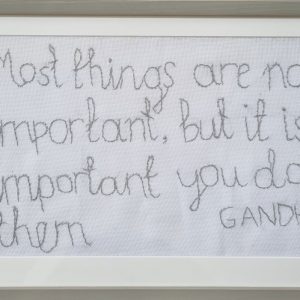 Most things are no
important, but it is
important you do
them GANDH